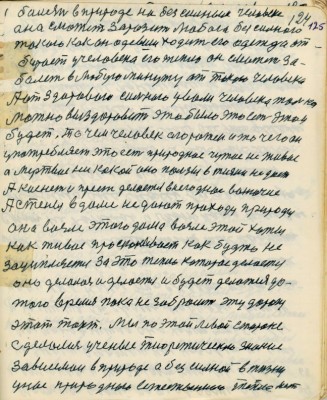 1 болезн в природе на бессильние человеке 124 125
она сможет заразет любога бессильного
такого как он одевши ходит его одежда от-
бирает у человека его тепло он сможет за-
болет в любую минуту от такого человека
А от здарового сильного умом человека только
можно выздороветь это было это ест этому
будет. То чем человек огорожен и то чего он
употребляет это ест природное чужое не живое
а мертвое никакой оно ползы в жизни не дает
А к
А стены в доме не дают приходу природы
она возле этого дома возле этой хаты
как живая проскакивает как будто не
зацепляется за это тепло которое делается
оно делалося делается и будет делатся до-
того время пока не забросит эту дорогу
этот поток. Мы по этой левой стороне
сделалися ученые теоретического знание
зависемои в природе а бессилной в жизни
у нас природного естественного